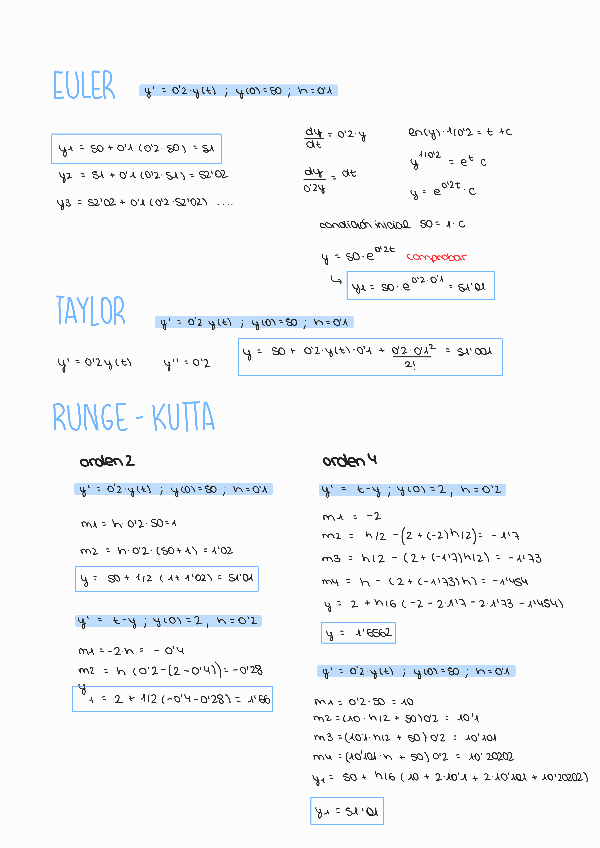 EULER
y' = 0'2·y(t) ; y(0)=50 ; h=0'1
y1 = 50+0'1(0'2·50) = 51
y2 = 51+0'1(0'2·51) = 52'02
y3 = 52'02+0'1(0'2·52'02) ....
dy/dt = 0'2·y
dy/0'2y = dt
en(y)·1/0'2 = t +c
y^1/0'2 = e^t c
y = e^0'2t · c
condición inicial 50 = 1·c
y = 50·e^0'2t comprobar
↳ y1 = 50·e^0'2·0'1 = 51'01
TAYLOR
y' = 0'2 y(t) ; y(0)=50 ; h=0'1
y' = 0'2y(t) y'' = 0'2
y = 50 + 0'2·y(t)·0'1 + 0'2·0'1²/2! = 51'001
RUNGE - KUTTA
orden 2
y' = 0'2·y(t) ; y(0)=50 ; h=0'1
m1 = h·0'2·50=1
m2 = h·0'2·(50+1) = 1'02
y = 50 + 1/2 (1+1'02) = 51'01
y' = t-y ; y(0)=2, h=0'2
m1=-2·h = -0'4
m2 = h(0'2-(2-0'4))=-0'28
y1 = 2 + 1/2(-0'4-0'28) = 1'66
orden 4
y' = t-y ; y(0)=2, h=0'2
m1 = -2
m2 = h/2 -(2+(-2)h/2)= -1'7
m3 = h/2 - (2+(-1'7)h/2) = -1'73
m4 = h - (2+(-1'73)h) = -1'454
y = 2 + h/6 (-2-2·1'7-2·1'73-1'454)
y = 1'6562
y' = 0'2·y(t) ; y(0)=50 ; h=0'1
m1 = 0'2·50 = 10
m2=(10·h/2 + 50)0'2 = 10'1
m3=(10'1·h/2 + 50)0'2 = 10'101
m4=(10'101·h + 50)0'2 = 10'20202
y1 = 50 + h/6 (10 + 2·10'1 + 2·10'101 + 10'20202)
y1 = 51'01